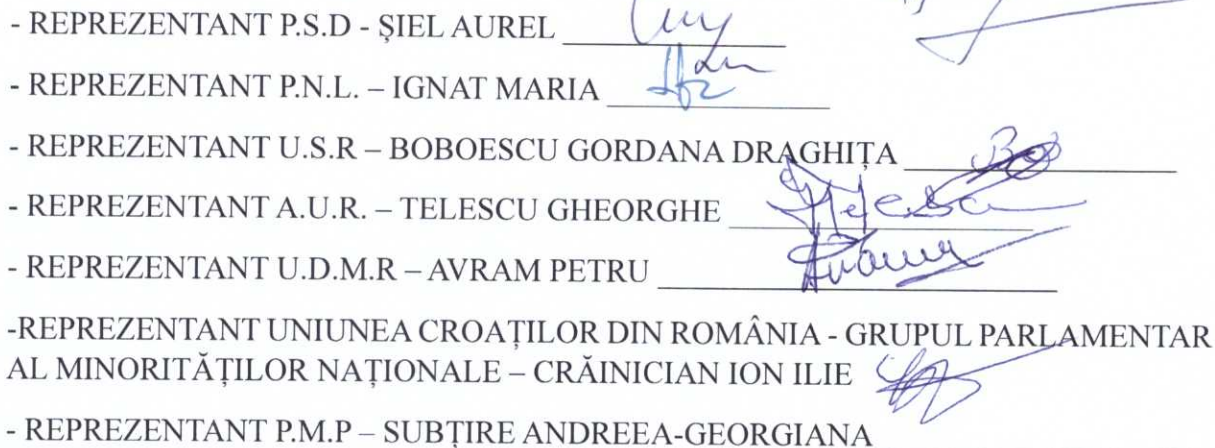 - REPREZENTANT P.S.D - ȘIEL AUREL
- REPREZENTANT P.N.L. – IGNAT MARIA
- REPREZENTANT U.S.R – BOBOESCU GORDANA DRAGHIȚA
- REPREZENTANT A.U.R. – TELESCU GHEORGHE
- REPREZENTANT U.D.M.R – AVRAM PETRU
-REPREZENTANT UNIUNEA CROAȚILOR DIN ROMÂNIA - GRUPUL PARLAMENTAR
AL MINORITĂȚILOR NAȚIONALE – CRĂINICIAN ION ILIE
- REPREZENTANT P.M.P – SUBȚIRE ANDREEA-GEORGIANA